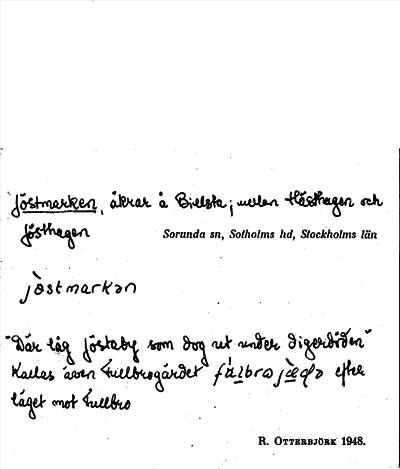 Jöstmarken, åkrar å Bielsta; mellan Hästhagen och
Jösthagen
Sorunda sn, Sotholms hd, Stockholms län
jö̀stmarkən
"Där låg Jöstaby som dog ut under digerdöden"
Kallas även Fullbrogärdet efter
läget mot Fullbro
R. OTTERBJÖRK 1948.